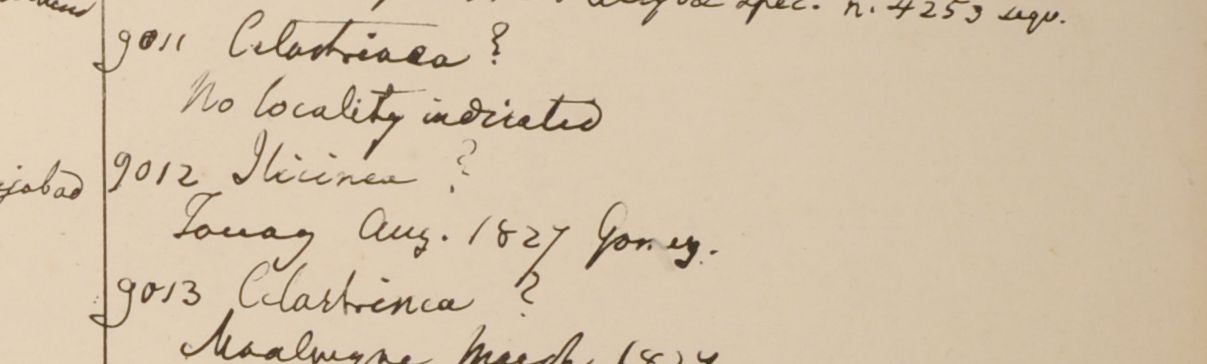 spec. n. 4253 seqv.
9011 Celastrinea ?
No locality indicated
9012 Ilicinea ?
jabad
Tavoy Aug. 1827 Gomez.
9013 Celastrinea ?
March 1827